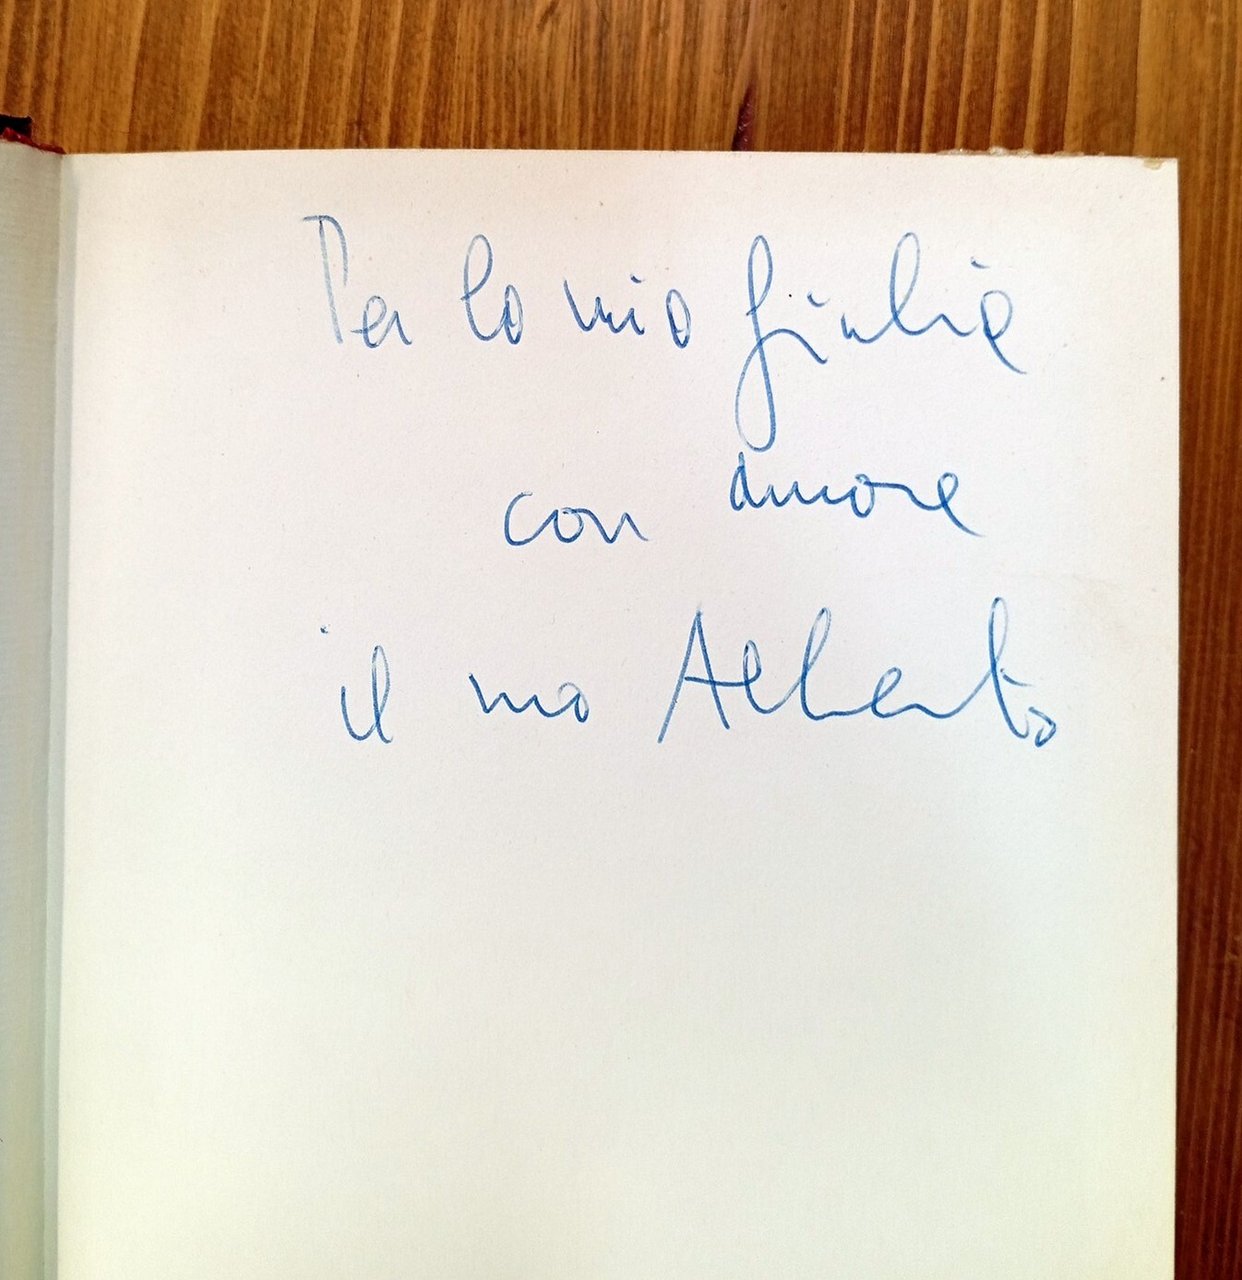 Per la mia Giulia
con amore
il suo Alberto